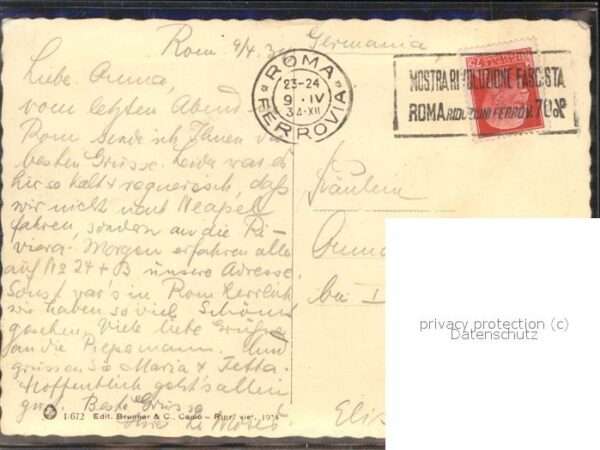 Rom 9/4.34
Germania
Liebe Anna,
vom letzten Abend
Rom sende ich Ihnen
besten Grüsse. Leider war es
hier so kalt + regnerisch, daß
wir nicht nach Neapel
fahren, sondern an die Ri-
viera. Morgen erfahren alle
auf No 24 + B unsere Adresse
Sonst war's in Rom herrlich
wir haben so viel Schönes
gesehen. Viele liebe Grüsse
an die
grüssen Sie Maria +
Hoffentlich geht's allen
gut. Beste Grüsse
Ihre
ROMA
FERROVIA
23-24
9·IV
34·XII
MOSTRA RIVOLUZIONE FASCISTA
ROMA RIDUZIONI FERROV. 70%
Fräulein
Anna
bei
Elis
1612 Edit. Brunner & C., Como - Ripr. viet. 1934
privacy protection (c)
Datenschutz